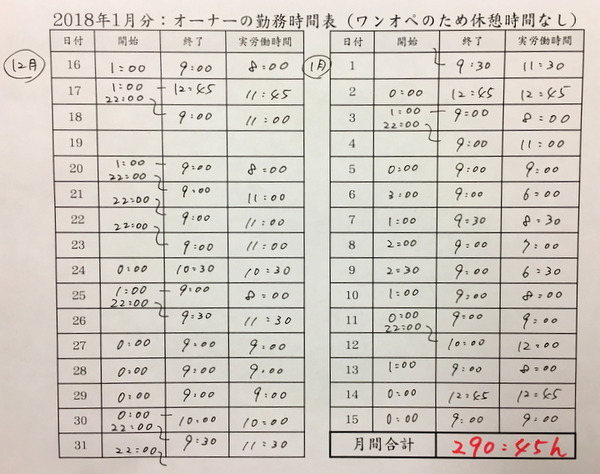 2018年1月分：オーナーの勤務時間表（ワンオペのため休憩時間なし）
12月
日付 開始 終了 実労働時間
16 1:00 9:00 8:00
17 1:00 12:45 11:45
22:00
18 9:00 11:00
19
20 1:00 9:00 8:00
22:00
21 9:00 11:00
22:00
22 9:00 11:00
22:00
23 9:00 11:00
24 0:00 10:30 10:30
25 1:00 9:00 8:00
22:00
26 9:30 11:30
27 0:00 9:00 9:00
28 0:00 9:00 9:00
29 0:00 9:00 9:00
30 0:00 10:00 10:00
22:00
31 9:30 11:30
22:00
1月
日付 開始 終了 実労働時間
1 9:30 11:30
2 0:00 12:45 12:45
3 1:00 9:00 8:00
22:00
4 9:00 11:00
5 0:00 9:00 9:00
6 3:00 9:00 6:00
7 1:00 9:30 8:30
8 2:00 9:00 7:00
9 2:30 9:00 6:30
10 1:00 9:00 8:00
11 0:00 9:00 9:00
22:00
12 10:00 12:00
13 1:00 9:00 8:00
14 0:00 12:45 12:45
15 0:00 9:00 9:00
月間合計 290:45h